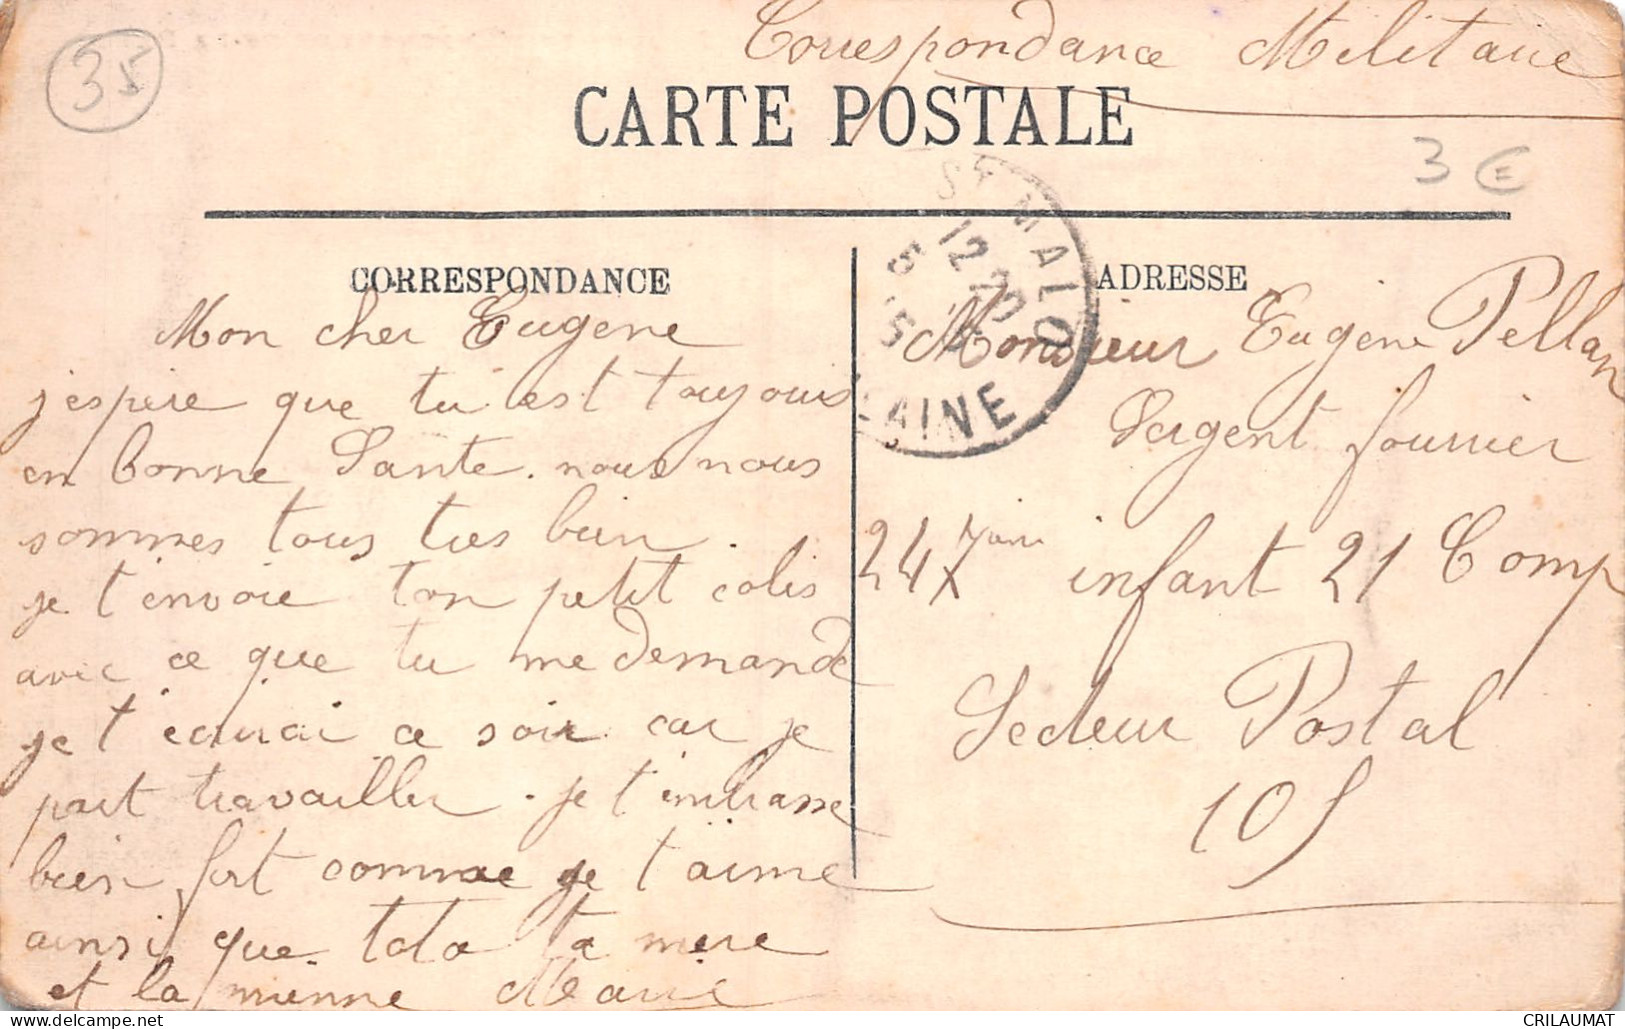 35
Correspondance Militaire
CARTE POSTALE
3 €
CORRESPONDANCE
Mon cher Eugene
j'espere que tu est toujours
en bonne Santé. nous nous
sommes tous tres bien.
je t'envoie ton petit colis
avec ce que tu me demande
je t'écrirai ce soir car je
part travailler. je t'embrasse
bien fort comme je t'aime
ainsi que toto ta mere
et la mienne Marie
ST MALO
12 20
5
15
LAINE
ADRESSE
Monsieur Eugène Pellan
Sergent fourrier
247 infant 21 Comp
Secteur Postal
105
CRILAUMAT